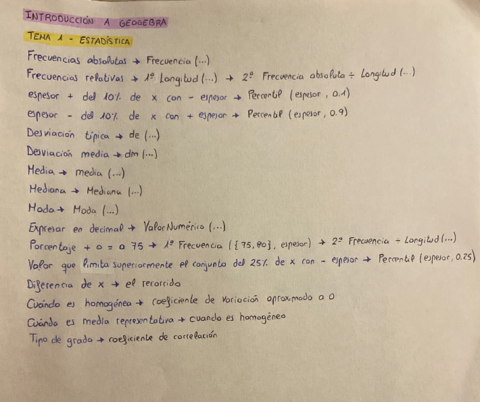 INTRODUCCIÓN A GEOGEBRA
TEMA 1 - ESTADÍSTICA
Frecuencias absolutas → Frecuencia (...)
Frecuencias relativas → 1º Longitud (...) → 2º Frecuencia absoluta ÷ Longitud (...)
espesor + del 10% de x con - espesor → Percentil (espesor, 0.1)
espesor - del 10% de x con + espesor → Percentil (espesor, 0.9)
Desviación típica → de (...)
Desviación media → dm (...)
Media → media (...)
Mediana → Mediana (...)
Moda → Moda (...)
Expresar en decimal → ValorNumérico (...)
Porcentaje + o = a 75 → 1º Frecuencia ({75,90}, espesor) → 2º Frecuencia ÷ Longitud (...)
Valor que limita superiormente el conjunto del 25% de x con - espesor → Percentil (espesor, 0.25)
Diferencia de x → el recorrido
Cuándo es homogénea → coeficiente de variación aproximado a 0
Cuándo es media representativa → cuando es homogéneo
Tipo de grado → coeficiente de correlación